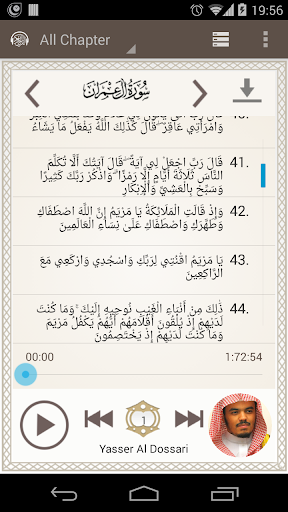 19:56
All Chapter
سُورَةُ آلِ عِمْرَانَ
40.
وَامْرَأَتِي عَاقِرٌ ۖ قَالَ كَذَٰلِكَ اللَّهُ يَفْعَلُ مَا يَشَاءُ
41. قَالَ رَبِّ اجْعَل لِّي آيَةً ۖ قَالَ آيَتُكَ أَلَّا تُكَلِّمَ
النَّاسَ ثَلَاثَةَ أَيَّامٍ إِلَّا رَمْزًا ۗ وَاذْكُر رَّبَّكَ كَثِيرًا
وَسَبِّحْ بِالْعَشِيِّ وَالْإِبْكَارِ
42. وَإِذْ قَالَتِ الْمَلَائِكَةُ يَا مَرْيَمُ إِنَّ اللَّهَ اصْطَفَاكِ
وَطَهَّرَكِ وَاصْطَفَاكِ عَلَىٰ نِسَاءِ الْعَالَمِينَ
43. يَا مَرْيَمُ اقْنُتِي لِرَبِّكِ وَاسْجُدِي وَارْكَعِي مَعَ
الرَّاكِعِينَ
44. ذَٰلِكَ مِنْ أَنبَاءِ الْغَيْبِ نُوحِيهِ إِلَيْكَ ۚ وَمَا كُنتَ
لَدَيْهِمْ إِذْ يُلْقُونَ أَقْلَامَهُمْ أَيُّهُمْ يَكْفُلُ مَرْيَمَ
وَمَا كُنتَ لَدَيْهِمْ إِذْ يَخْتَصِمُونَ
00:00 1:72:54
1
Yasser Al Dossari